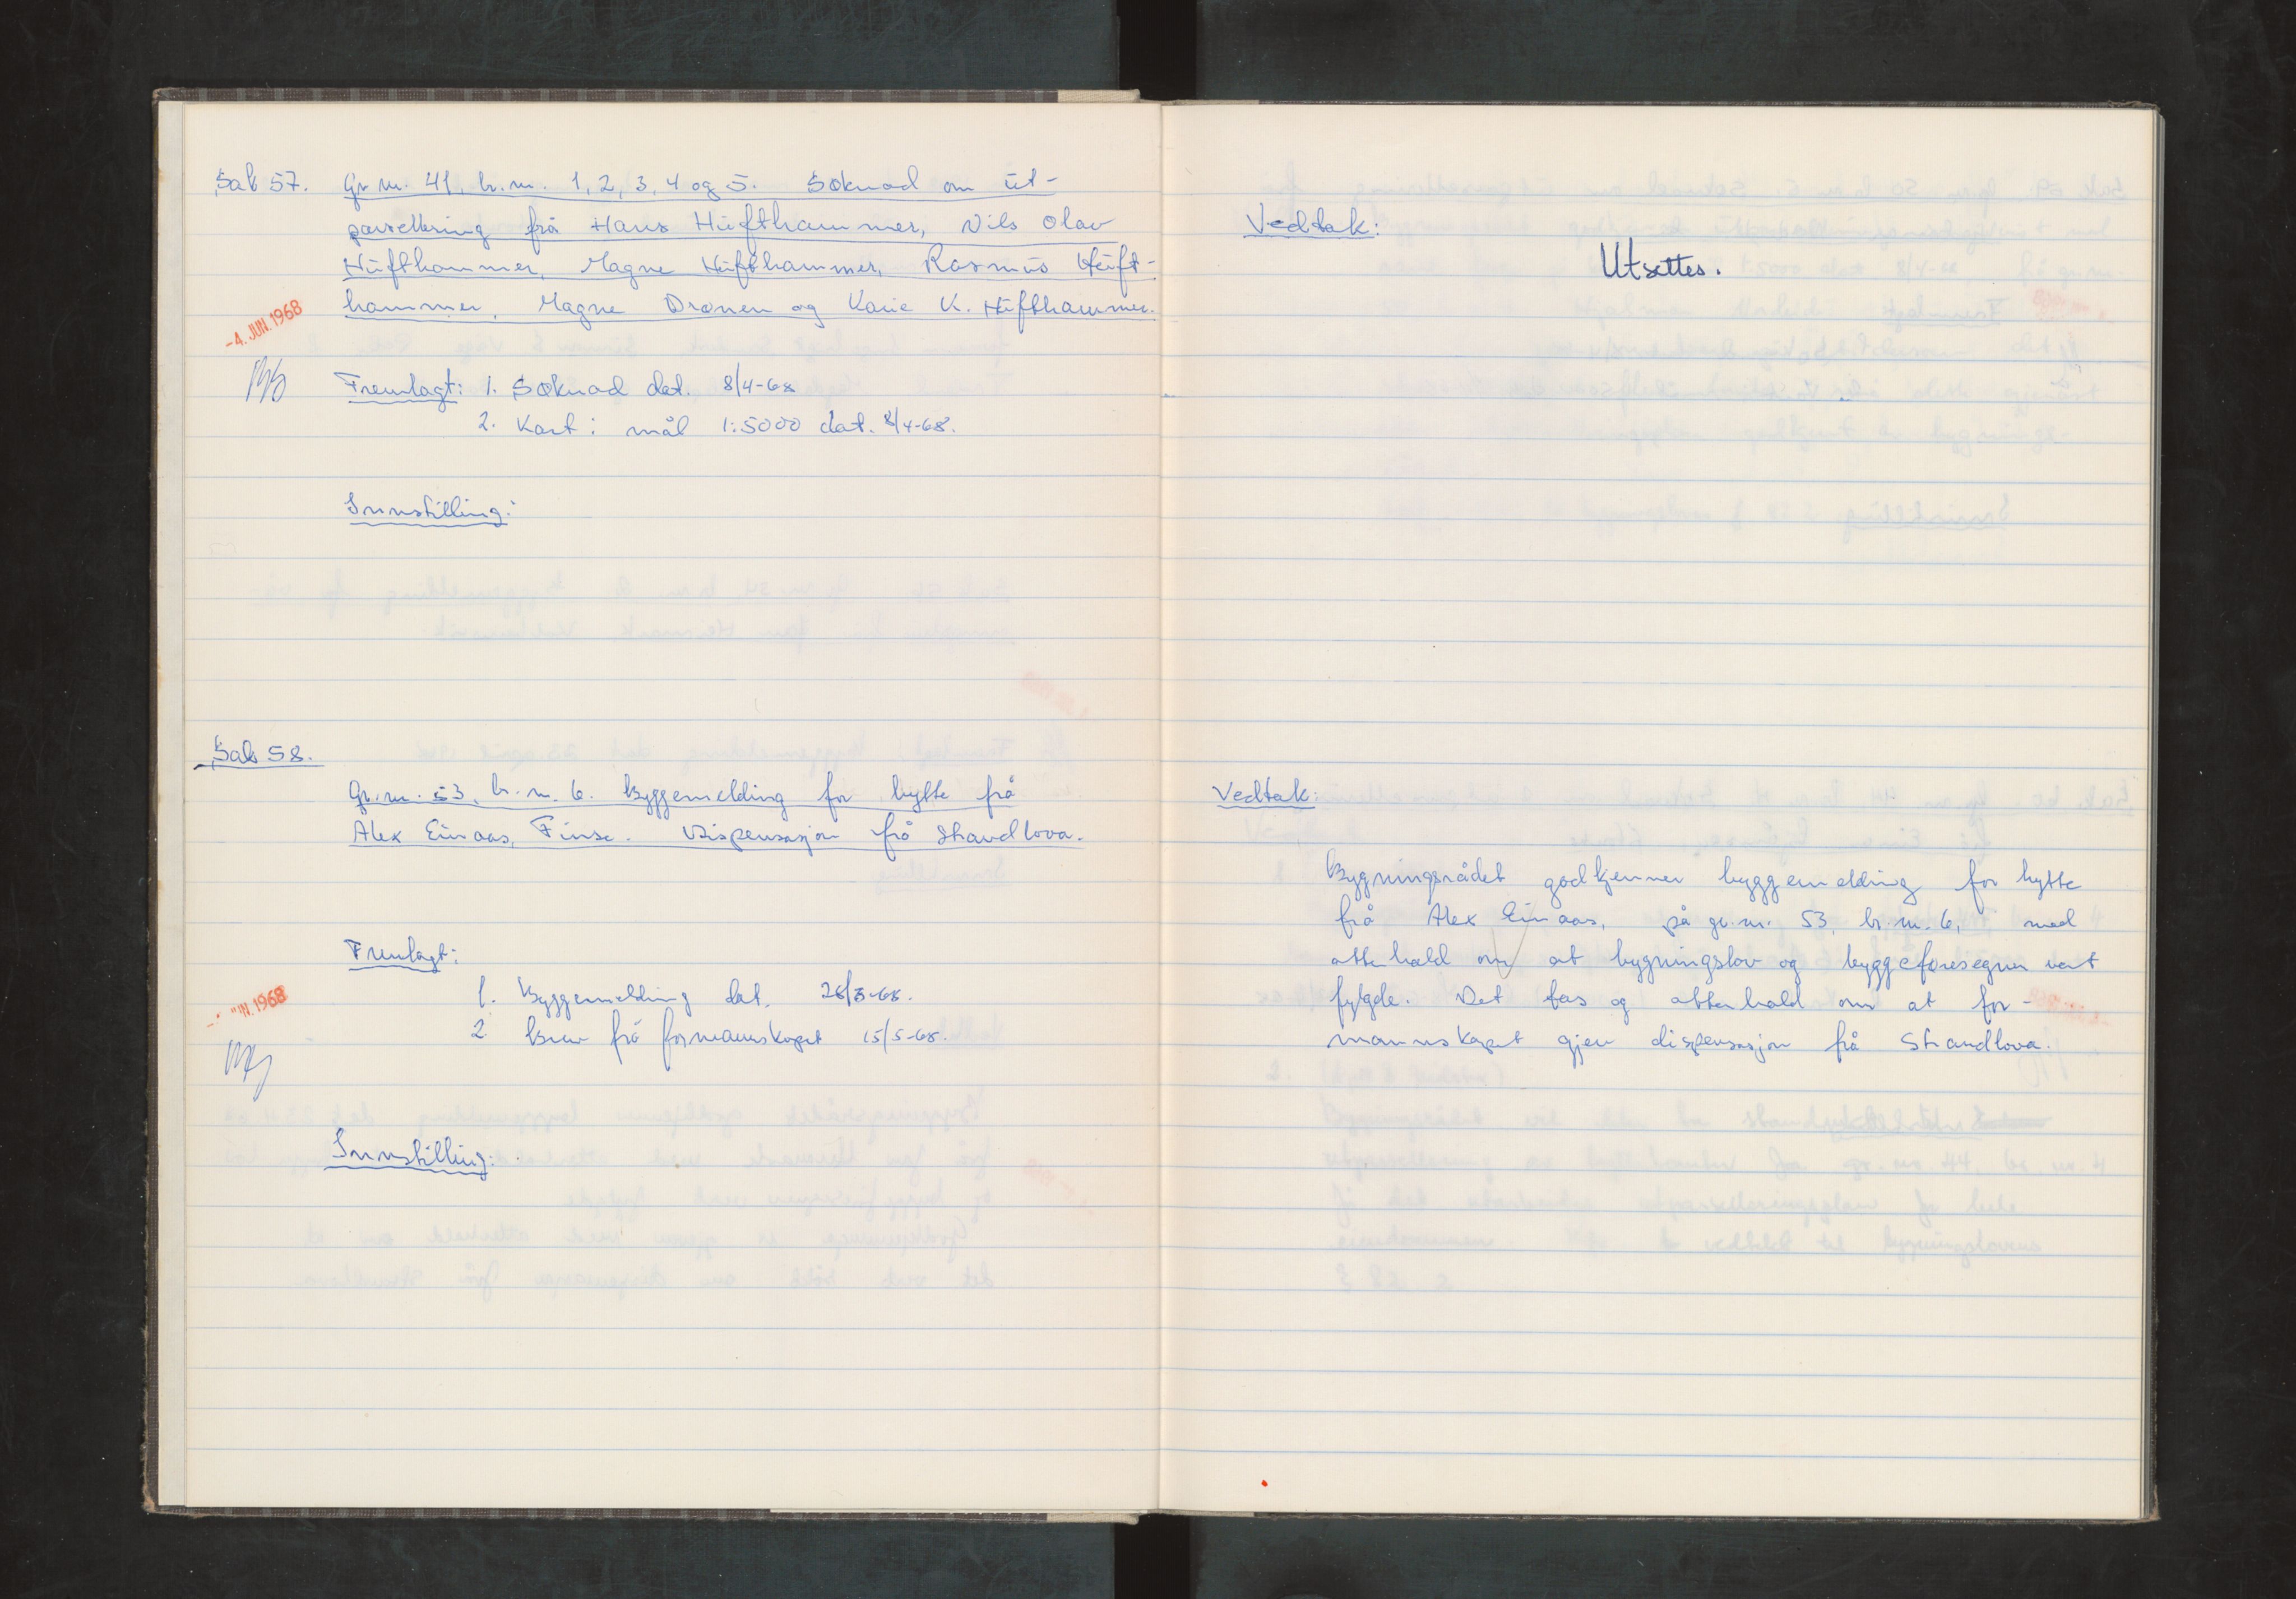 Sak 57. Gr.nr. 41, br.nr. 1, 2, 3, 4 og 5. Søknad om ut-
parsellering frå Hans Hufthammer, Nils Olav
Hufthammer, Magne Hufthammer, Rasmus Huft-
hammer, Magne Drønen og Karie K. Hufthammer.
-4. JUN. 1968
Fremlagt: 1. Søknad dat. 8/4-68
2. Kart i mål 1:5000 dat. 8/4-68.
Innstilling:
Sak 58.
Gr.nr. 53, br.nr. 6. Byggemelding for hytte frå
Alex Einaas, Finse. Dispensasjon frå Strandlova.
Fremlagt:
1. Byggemelding dat. 26/3-68.
JUN. 1968
2 Brev frå formannskapet 15/5-68.
Innstilling:
Vedtak:
Utsettes.
Vedtak:
Bygningsrådet godkjenner byggemelding for hytte
frå Alex Einaas, på gr.nr. 53, br.nr. 6, med
atterhald om at bygningslov og byggeforesegner vert
fylgde. Det tas og atterhald om at for-
mannskapet gjev dispensasjon frå Strandlova.